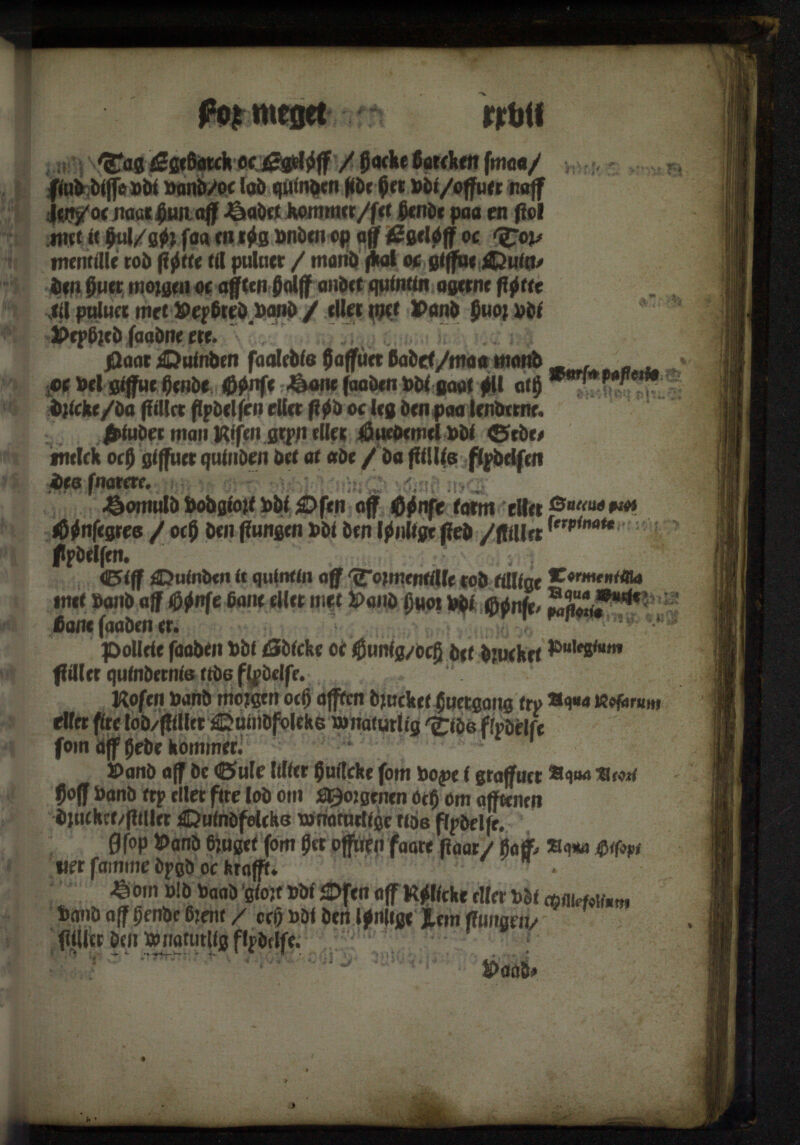 For meget xxvii
Tag Egebarck oc Egeløff / hacke barcken smaa /
siud disse vdi vand / oc lad quinden side her vdi / offuer naff
len / oc naar hun aff Badet kommer / set hende paa en stol
met it hul / gør saa en røg vnden op aff Egeløff oc Tor-
mentille rod støtte til puluer / mand skal oc giffue Quin-
den huer morgen oc afften halff andet quintin agerne støtte
til puluer met Veybred vand / eller met Vand huor vdi
Veybred saadne ere.
Naar Quinden saaledis haffuer badet / maa mand Bursa pastoris
oc vel giffue hende Hønse Bane saaden vdi gaat øll ath
dricke / da stiller slydelsen eller stød oc leg den paa lenderne.
Siuder man Risen gryn eller Huedemel vdi Gede-
melck och giffuer quinden det at æde / da stillis slydelsen
des snarere.
Bomuld vodgiort vdi Osen aff Hønse tarm eller Succus pas
Hønsegres / och den stungen vdi den lønlige sted / stiller serpinate
slydelsen.
Giff Quinden it quintin aff Tormentille rod tillige Tormentilla
met vand aff Hønse bane eller met Vand huor vdi Hønse-
bane saaden er.
Polleie saaden vdi Edicke oc Hunig / och det drucket Pulegium
stiller quindernis tids slydelse.
Rosen vand morgen och afften drucket huergang try Aqua Rosarum
eller fire lod / stiller Quindfolcks wnaturlig Tids slydelse
som aff hede kommer.
Vand aff de Gule lilier huilcke som voxe i graffuer Aqua Acori
hoff vand try eller fire lod om Morgenen och om afftenen
drucket / stiller Quindfolcks wnaturlige tids slydelse.
Isop Vand bruget som her offuen saare staar / haff- Aqua Hisopi
uer samme dygd oc krafft.
Bom vld vaad giort vdi Osen aff Kølicke eller vdi
vand aff hende brent / och vdi den lønlige Lem stungen /
stiller den wnaturlig slydelse.
Vaad-